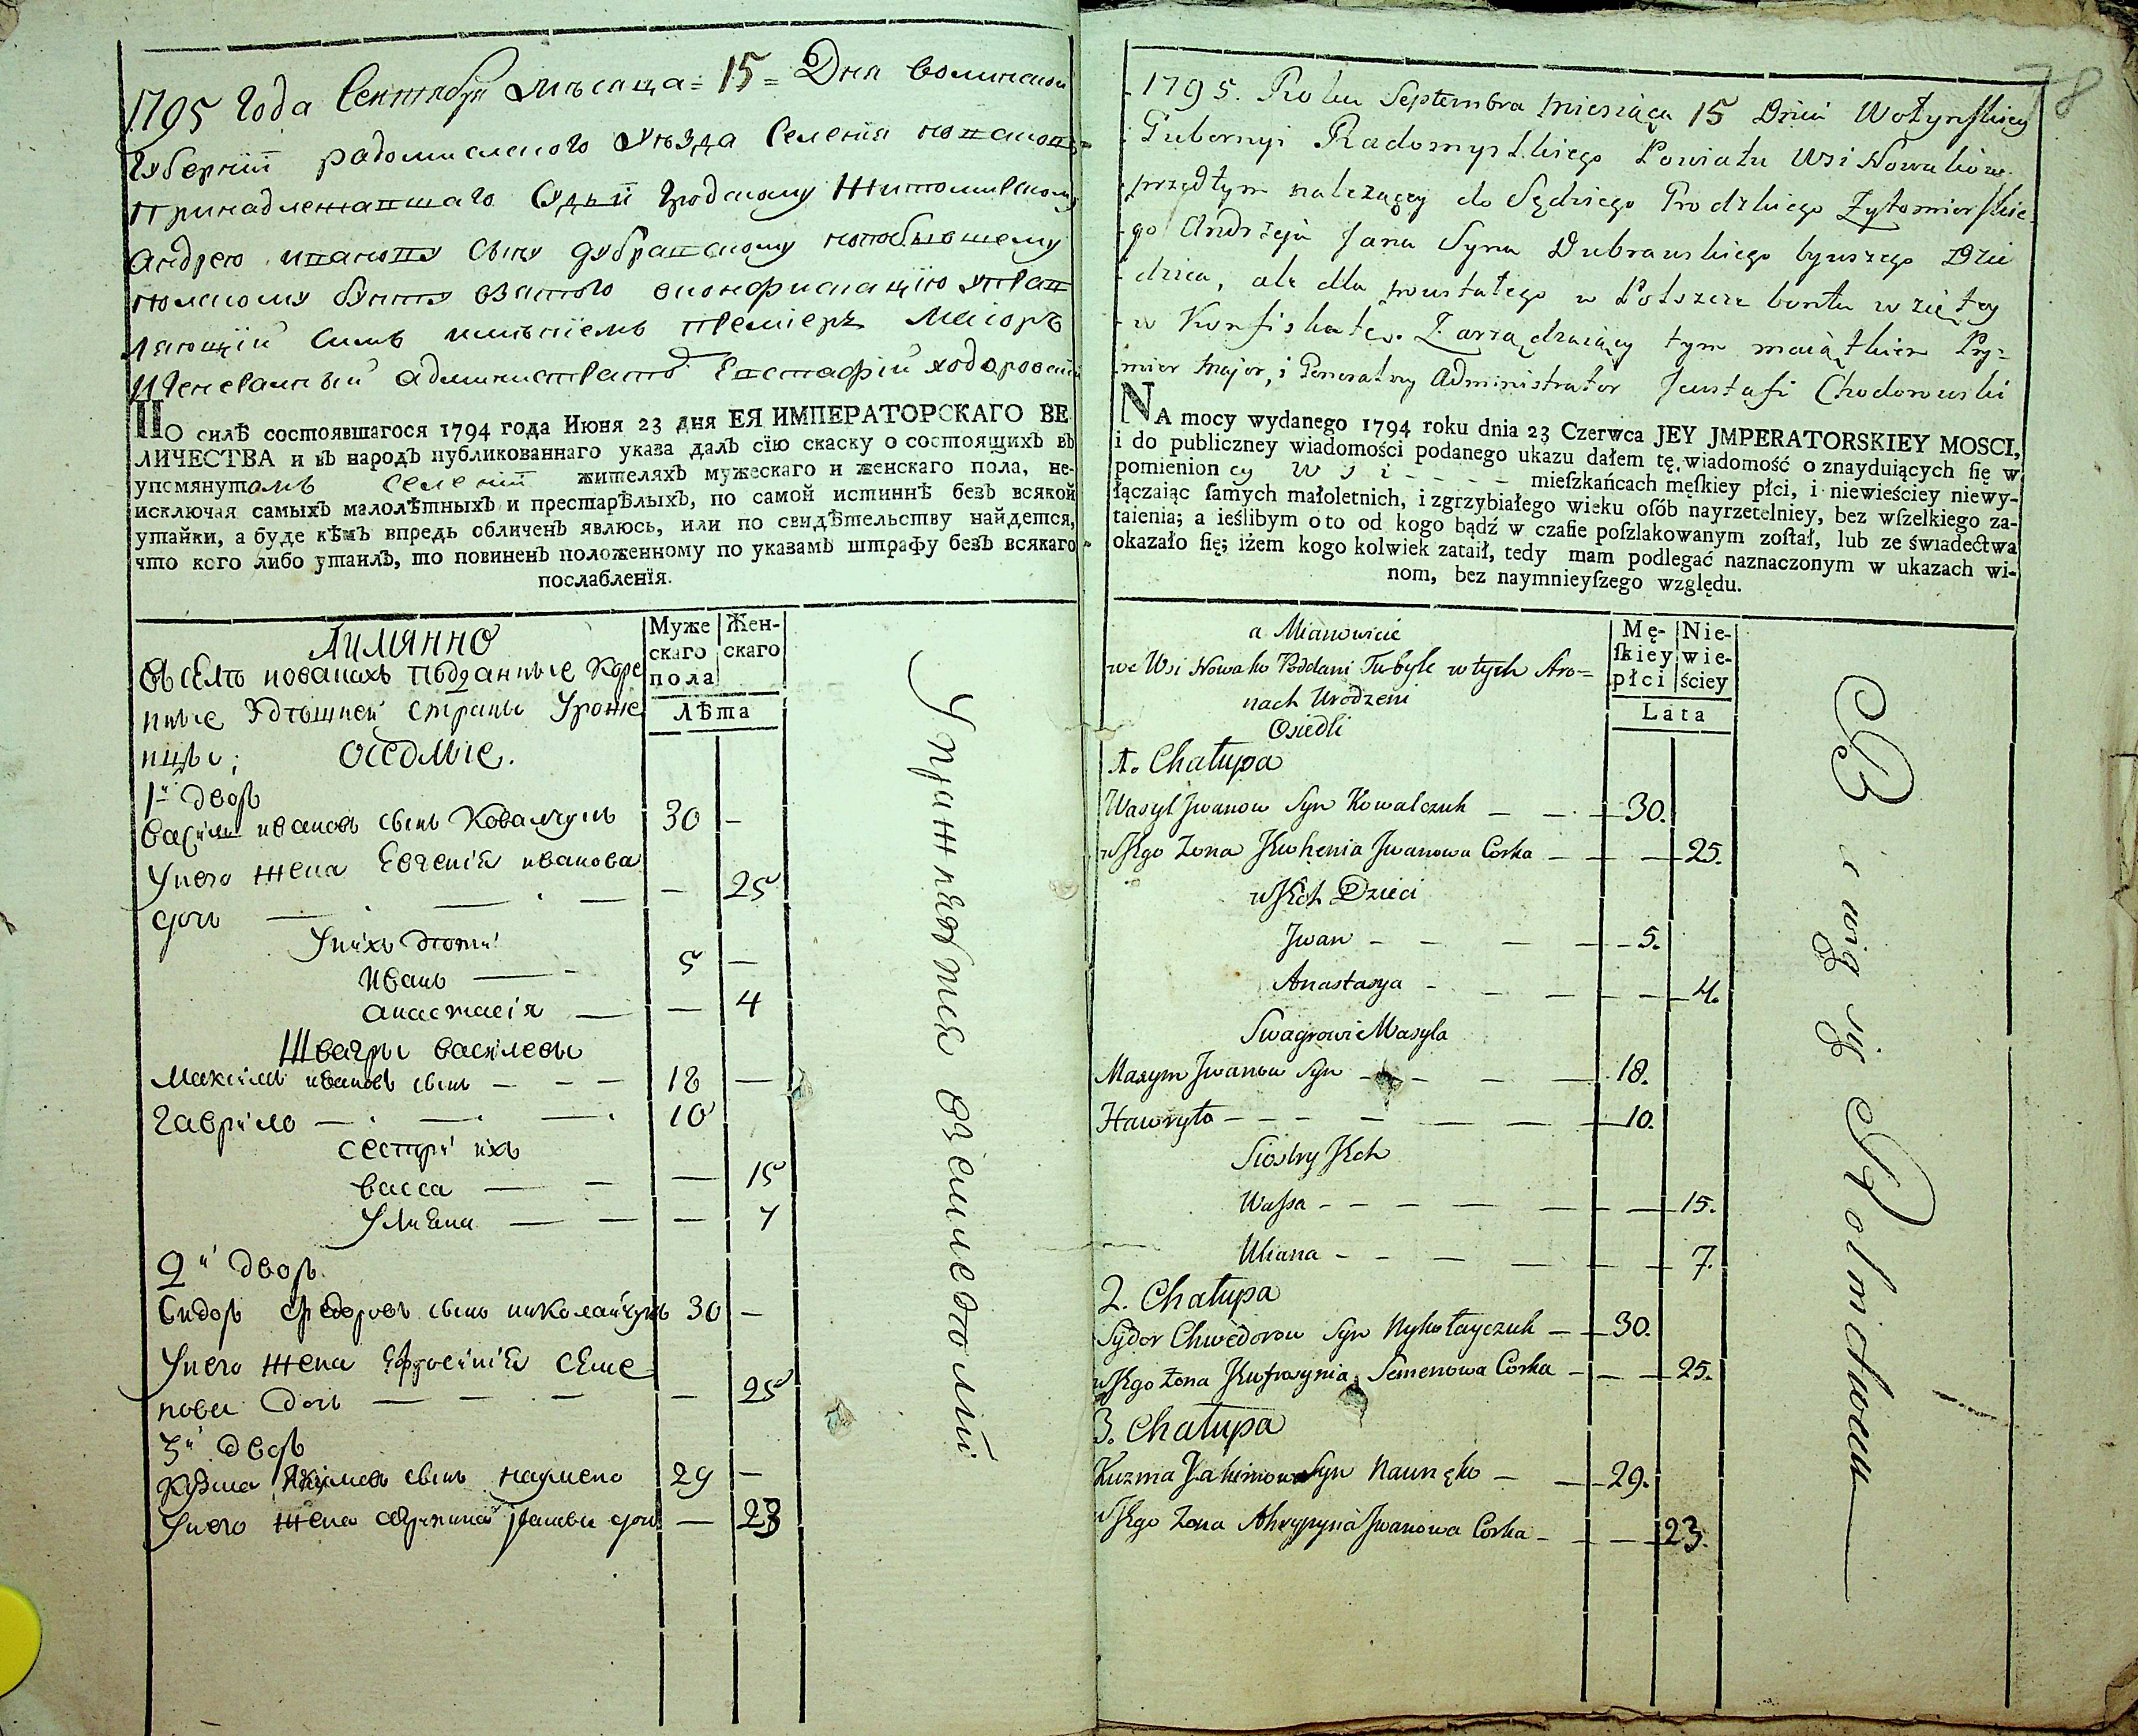 1795 Года Сентября Мѣсяца = 15 = Дня Волинской
Губернїи радомислского Уѣзда Селенїя
Принадлежавшаго Судьи Гродскому Житомирскому
Андрею сыну дубравскому
полскому бунту взятого вконфискацїю управ
ляющїй симъ имѣнїемъ премїеръ Маїоръ
И Генералный администраторъ Евстафїй ходоровскїй
ПО силѣ состоявшагося 1794 года Июня 23 дня ЕЯ ИМПЕРАТОРСКАГО ВЕ
ЛИЧЕСТВА и въ народъ публикованнаго указа далъ сїю скаску о состоящихъ въ
упомянутомъ Селенїи жителяхъ мужескаго и женскаго пола, не-
исключая самыхъ малолѣтныхъ и престарѣлыхъ, по самой истиннѣ безъ всякой
утайки, а буде кѣмъ впредь обличенъ явлюсь, или по свидѣтельству найдется,
что кого либо утаилъ, то повиненъ положенному по указамъ штрафу безъ всякаго
послабленїя.
Муже
скаго
пола
Жен-
скаго
Лѣта
АИМЯННО
Всѣлѣ новакахъ Подданные Коре
нные Здѣшней Страны Уроже
нцы; Оседлые.
1й дворъ
Василий ивановъ сынъ Ковалчукъ 30 —
Унего жена Евгенїя иванова
дочь — 25
Унихъ дѣти
Иванъ 5 —
анастасїя — 4
Швагры василевы
Максимъ ивановъ сынъ 18 —
Гаврило 10
Сестри ихъ
васса — 15
Улияна — 7
2й дворъ
Сидоръ Федоровъ сынъ николайчукъ 30 —
Унего жена Ефросинїя Семе
нова дочь — 25
3й дворъ
Кузма Якимовъ сынъ науменко 29 —
Унего жена иванова дочь — 23
Упражняются въ земледелїи
78
1795. Roku Septembra miesiąca 15 Dnia Wołynskiey
Gubernyi Radomyslskiego Powiatu Wsi Nowaków
przedtym należącey do Sędziego Grodzkiego Zytomierskie-
go Andrzeja Jana Syna Dubrawskiego bywszego Dzie
dzica, ale dla powstałego w Polszcze bontu wziętey
w Konfiskatę. Zarządzaiący tym maiątkiem Pry=
mier Major, i Generalny Administrator Jewstafi Chodorowski
NA mocy wydanego 1794 roku dnia 23 Czerwca JEY JMPERATORSKIEY MOSCI,
i do publiczney wiadomości podanego ukazu dałem tę wiadomość o znayduiących ſię w
pomienioney Wsi - - - - - mieſzkańcach męſkiey płci, i niewieściey niewy-
łączaiąc ſamych małoletnich, i zgrzybiałego wieku oſób nayrzetelniey, bez wſzelkiego za-
taienia; a ieślibym o to od kogo bądź w czaſie poſzlakowanym zoſtał, lub ze świadectwa
okazało ſię; iżem kogo kolwiek zataił, tedy mam podlegać naznaczonym w ukazach wi-
nom, bez naymnieyſzego względu.
Mę-
ſkiey
płci
Nie-
wie-
ściey
Lata
a Mianowicie
we Wsi Nowako Poddani Tubyle w tych Stro=
nach Urodzeni
Osiedli
1. Chałupa
Wasyl Jwanow Syn Kowalczuk — 30.
w Jego Zona Jewhenia Jwanowa Corka — 25.
w Jch Dzieci
Jwan — 5.
Anastasya — 4.
Swagrowie Wasyla
Maxym Jwanow Syn — 18.
Hawryło — 10.
Siostry Jch
Waſsa — 15.
Uliana — 7.
2. Chałupa
Sydor Chwedorow Syn Nykołayczuk — 30.
w Jego Zona Jewfrosynia Semenowa Corka — 25.
3. Chałupa
Kuzma Jakimow Syn Naumęko — 29.
w Jego Zona Ahrypyna Jwanowa Corka — 23.
Bawią się Rolnictwem